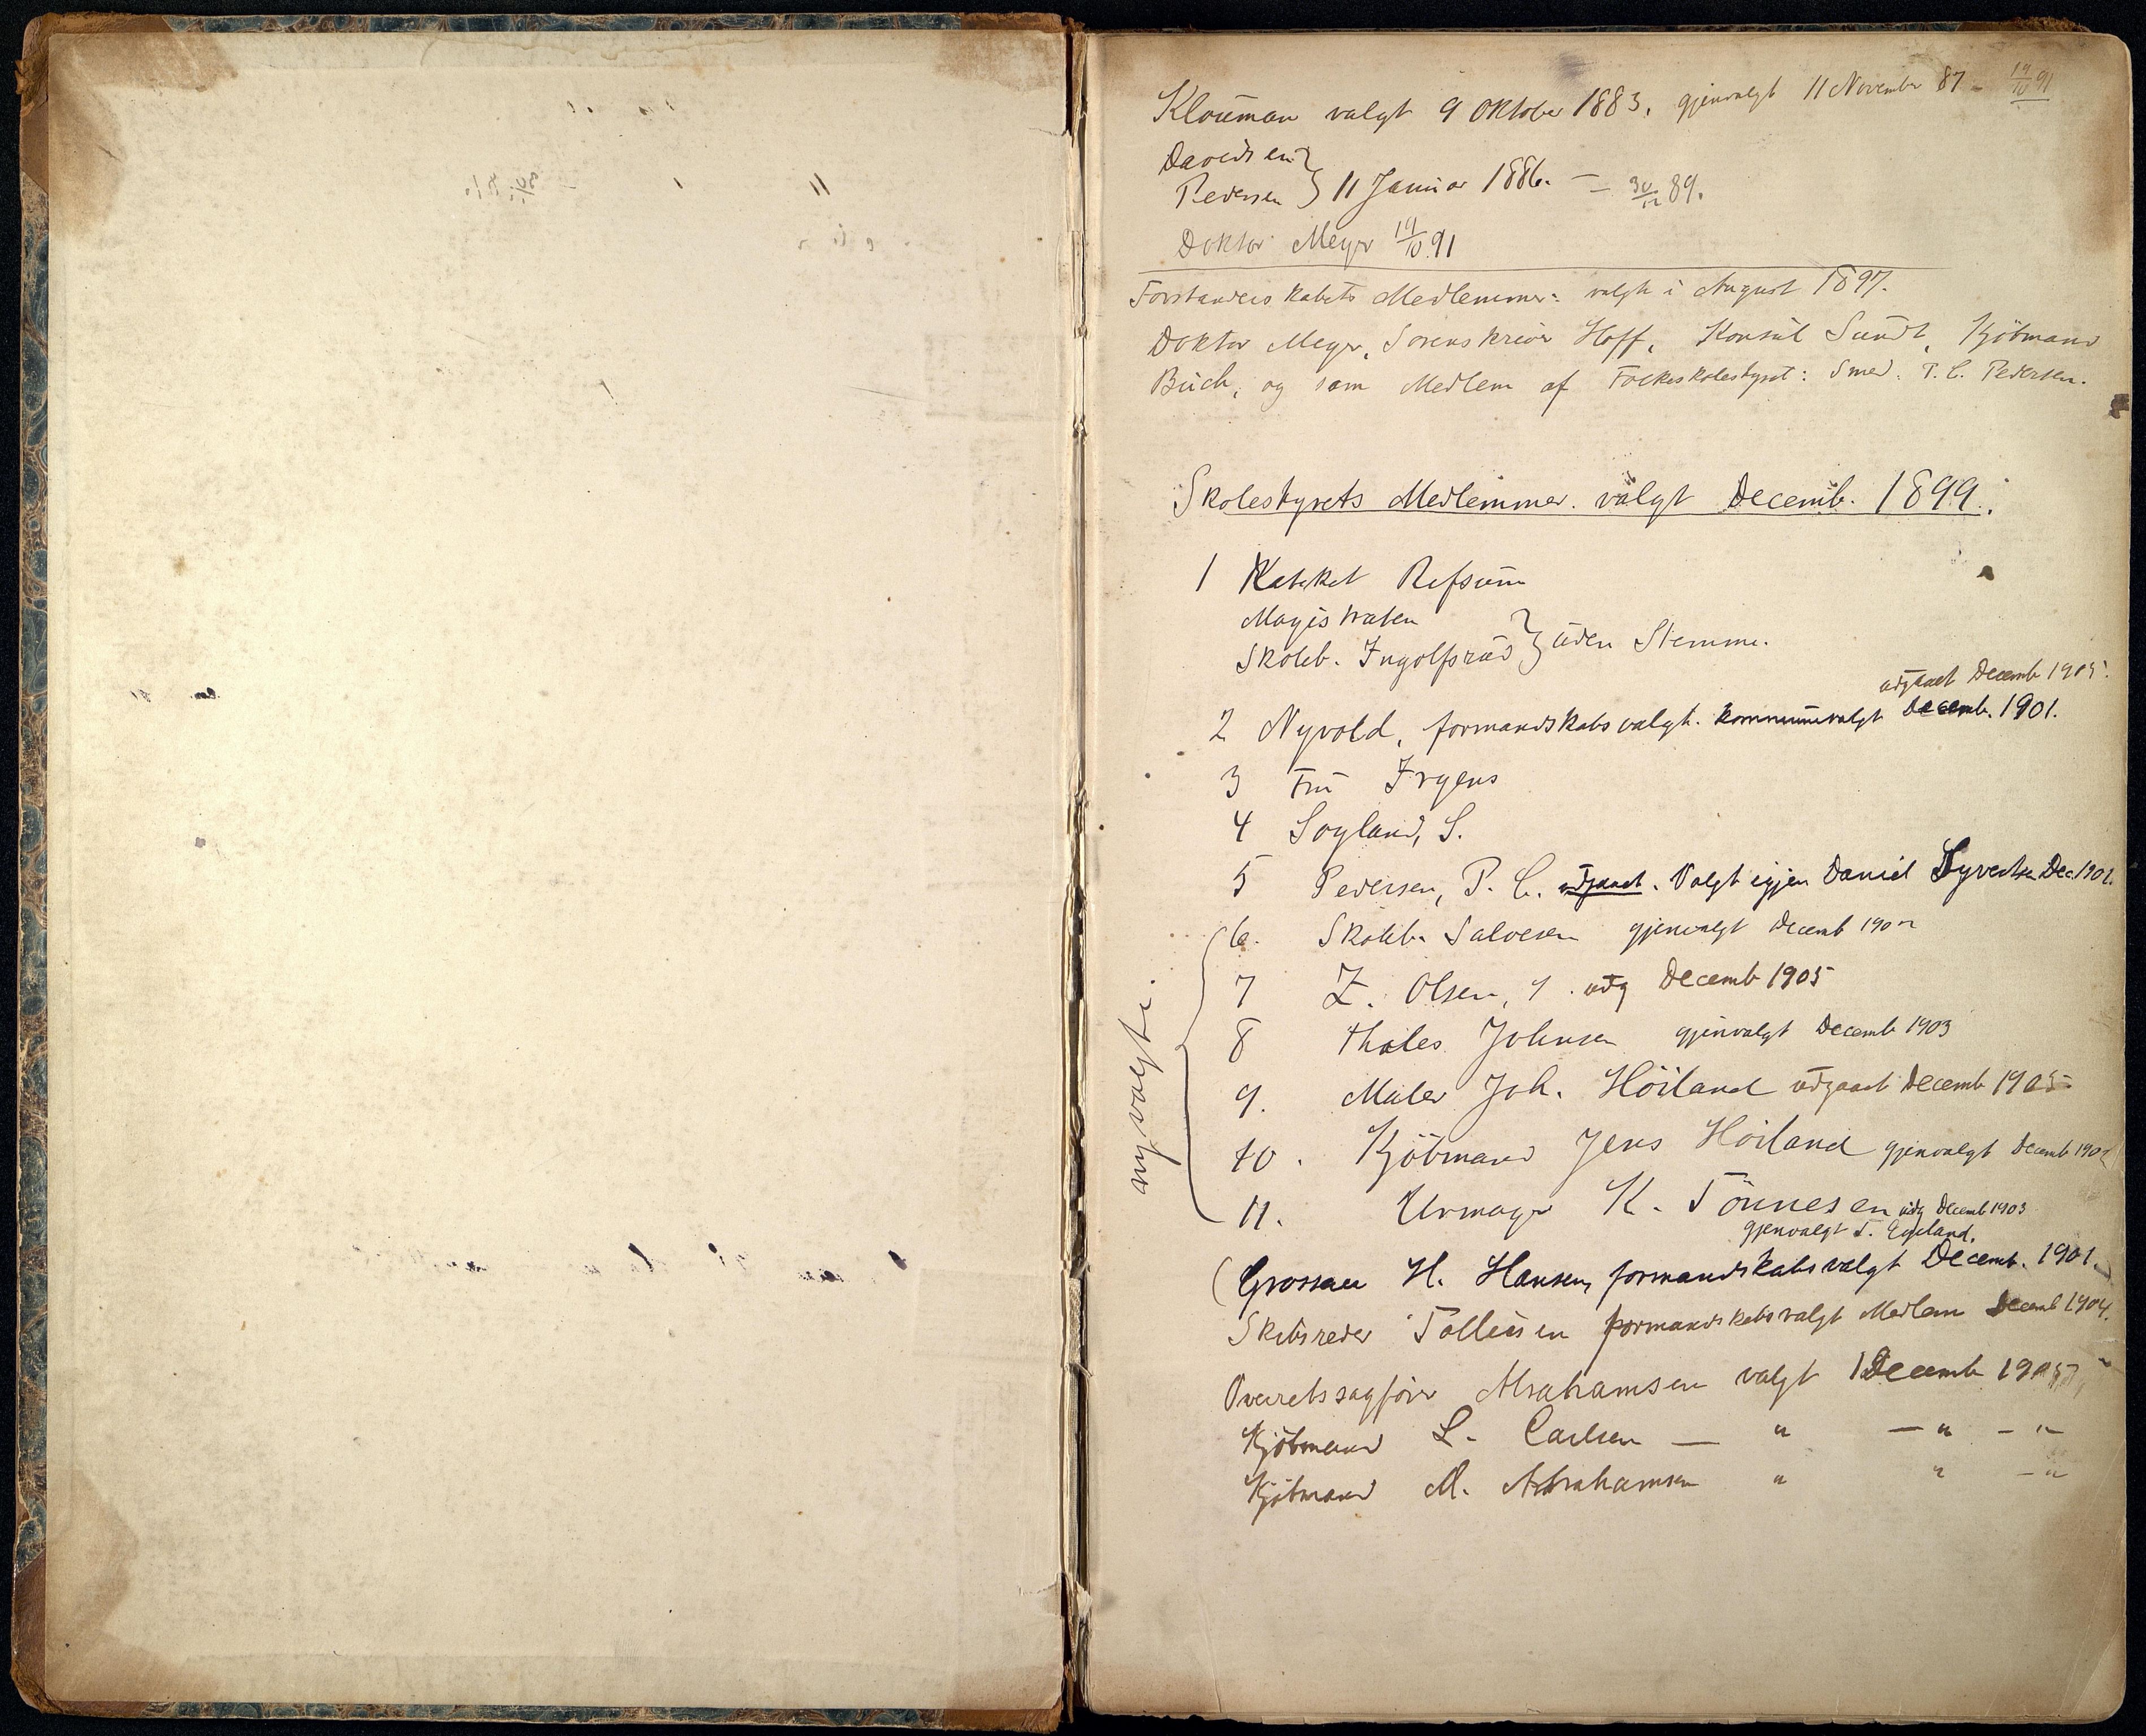 Klouman valgt 9 Oktober 1883, gjenvalgt 11 November 87 - 19/10 91
Davidsen
Pedersen } 11 Januar 1886. — 30/12 89.
Doktor Meyer 19/10 91
Forstanderskabets Medlemmer: valgte i August 1897.
Doktor Meyer, Sorenskriver Hoff, Konsul Sundt, Kjöbmand
Buch, og som Medlem af Folkeskolestyret: Smed. P. C. Pedersen.
Skolestyrets Medlemmer. valgt Decemb. 1899.
1 Kateket Refsum
Magistraten
Skoleb. Ingolfsrud } uden Stemme.
udgaaet Decemb 1905.
2 Nyvold, formandskabsvalgt. kommunevalgt Decemb. 1901.
3 Fru Irgens
4 Soyland, S.
5 Pedersen, P. C. udgaaet. Valgt igjen Daniel Syvertsen Dec. 1901.
nyvalgte.
6. Skoleb. Salvesen gjenvalgt Decemb
7 Z. Olsen, udg Decemb 1905
8 Thales Johnsen gjenvalgt Decemb 1903
9. Maler Joh. Höiland udgaaet Decemb 1905
10. Kjöbmand Jens Höiland gjenvalgt Decemb
11. Urmager K. Tönnesen udg Decemb 1903
gjenvalgt T. Egeland.
(Grosserer H. Hansen, formandskabsvalgt Decemb. 1901.
Skibsreder Tallessen formandskabsvalgt Medlem Decemb 1904.
Overretssagförer Abrahamsen valgt Decemb 1905
Kjöbmand L. Carlsen — " — " - "
Kjöbmand M. Abrahamsen " " - "